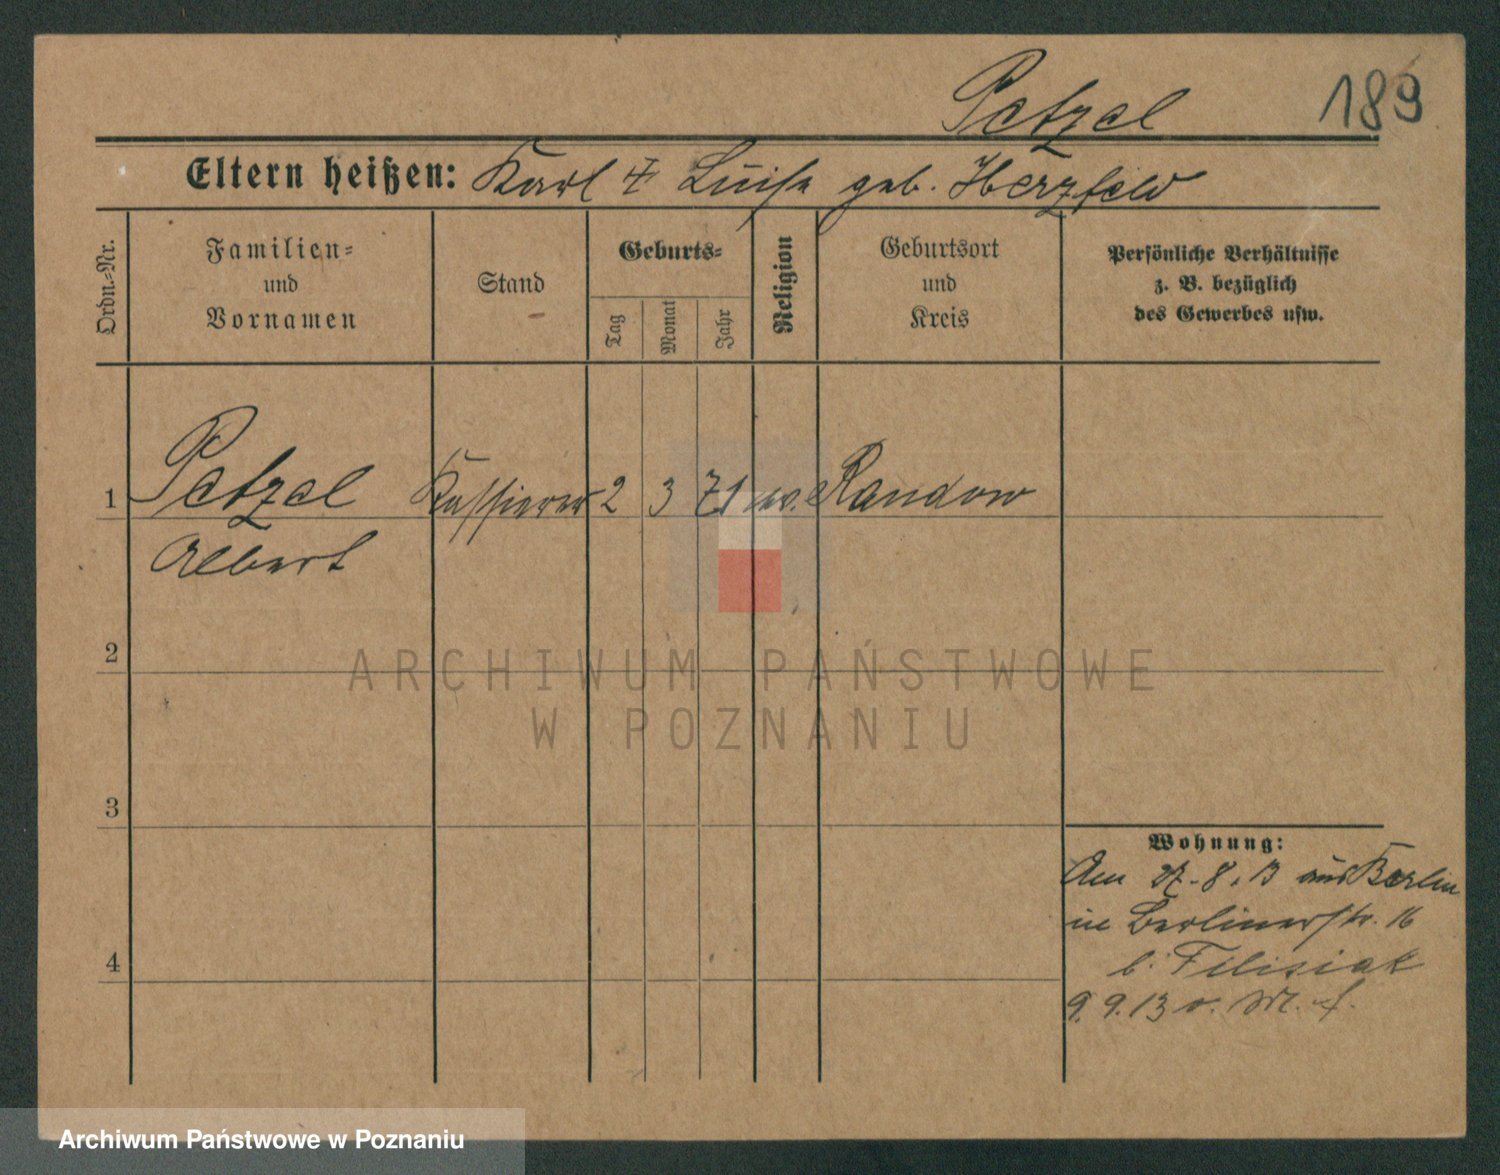 Petzel
189
Eltern heißen: Karl + Luise geb. Herzfeld
Ordn.-Nr.
Familien-
und
Vornamen
Stand
Geburts-
Tag
Monat
Jahr
Religion
Geburtsort
und
Kreis
Persönliche Verhältnisse
z. B. bezüglich
des Gewerbes usw.
1
Petzel
Albert
Kassierer
2
3
71
ev.
Randow
2
3
4
ARCHIWUM PAŃSTWOWE
W POZNANIU
Wohnung:
Am 27.8.13 aus Berlin
in Berlinerstr. 16
b. Filisiak
9.9.13 v. M.
Archiwum Państwowe w Poznaniu